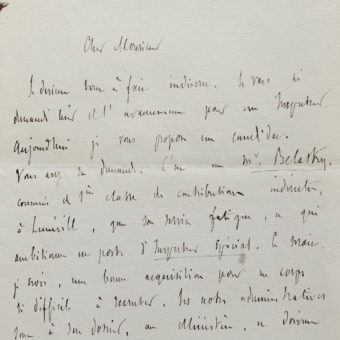 Cher Monsieur
Je deviens tout à fait indiscret. Je vous ai
demandé hier de l'avancement pour un Inspecteur.
Aujourd'hui je vous propose un candidat.
Vous avez sa demande. C'est un Mr. Belaskry,
commis de 1ère classe de contributions indirectes,
à Lunéville, que son service fatigue, et qui
ambitionne un poste d'Inspecteur spécial. Ce serait,
je crois, une bonne acquisition pour un corps
si difficile à recruter. Ses notes administratives
sont à son dossier, au Ministère, et doivent